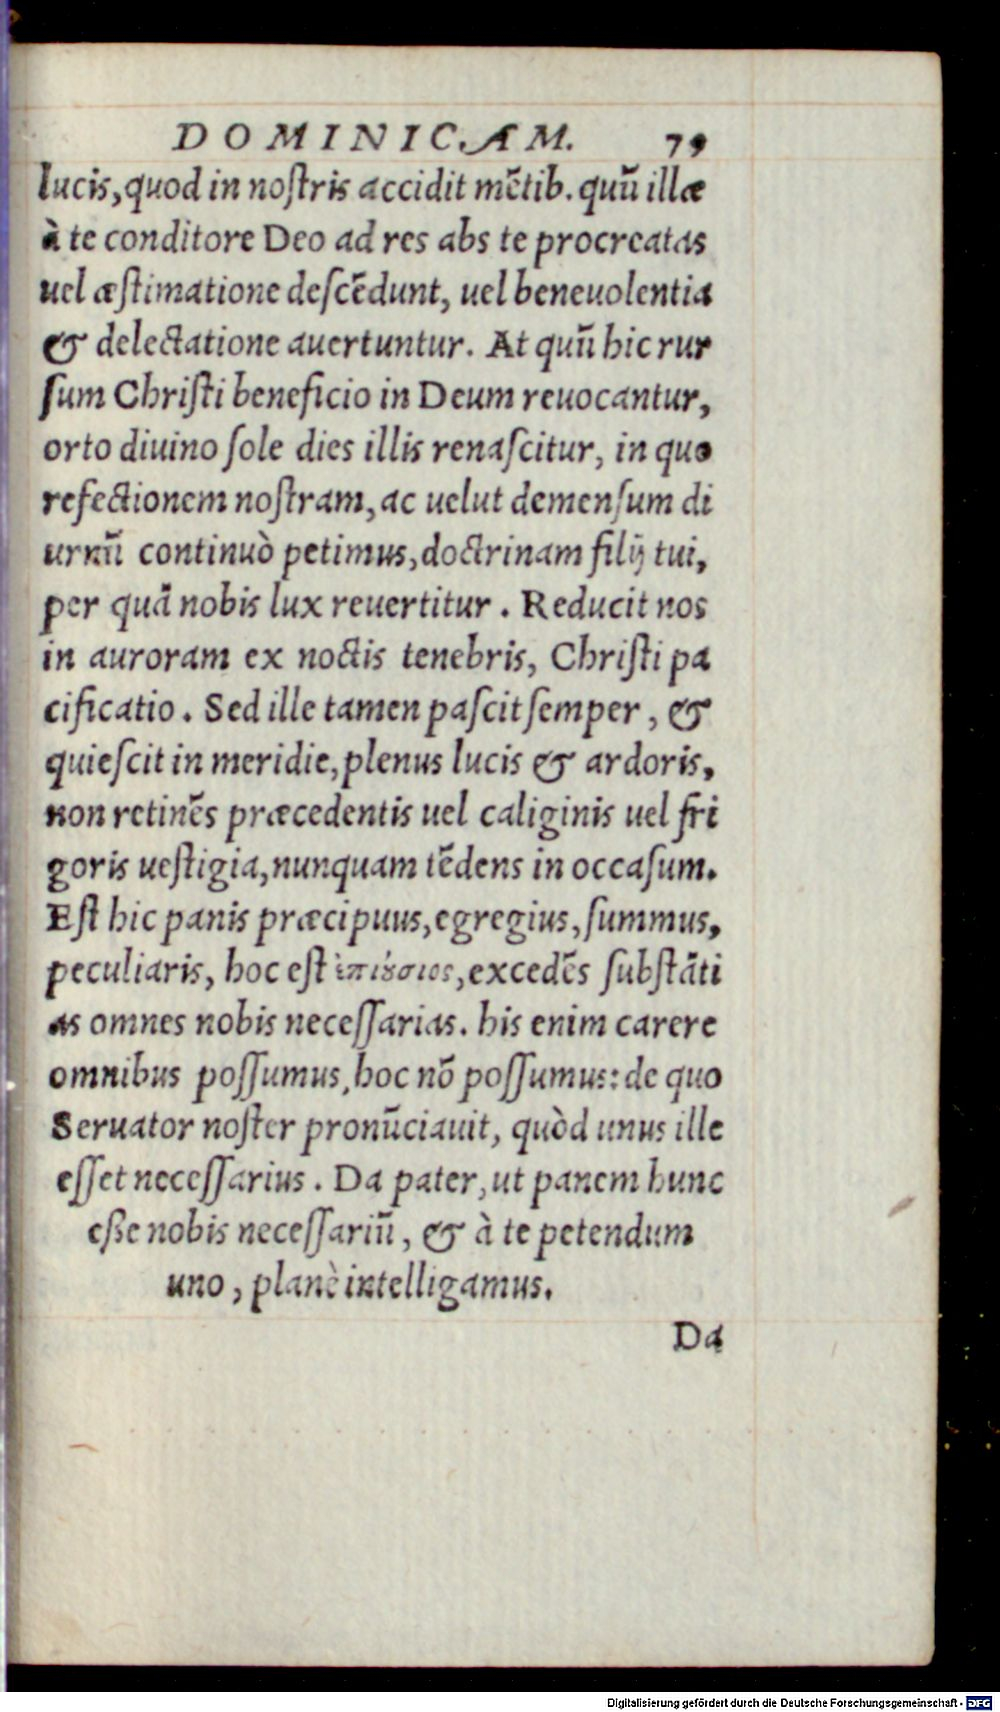 DOMINICAM. 79
lucis, quod in noſtris accidit mẽtib. quũ illæ
à te conditore Deo ad res abs te procreatas
uel æſtimatione deſcẽdunt, uel beneuolentia
& delectatione auertuntur. At quũ hic rur
ſum Chriſti beneficio in Deum reuocantur,
orto diuino ſole dies illis renaſcitur, in quo
refectionem noſtram, ac uelut demenſum di
urnũ continuò petimus, doctrinam filij tui,
per quã nobis lux reuertitur. Reducit nos
in auroram ex noctis tenebris, Chriſti pa
cificatio. Sed ille tamen paſcit ſemper, &
quieſcit in meridie, plenus lucis & ardoris,
non retinẽs præcedentis uel caliginis uel fri
goris ueſtigia, nunquam tẽdens in occaſum.
Eſt hic panis præcipuus, egregius, ſummus,
peculiaris, hoc eſt ἐπιούσιος, excedẽs ſubſtãti
as omnes nobis neceſſarias. his enim carere
omnibus poſſumus, hoc nõ poſſumus: de quo
Seruator noſter pronũciauit, quòd unus ille
eſſet neceſſarius. Da pater, ut panem hunc
eſse nobis neceſſariũ, & à te petendum
uno, planè intelligamus.
Da
Digitalisierung gefördert durch die Deutsche Forschungsgemeinschaft - DFG